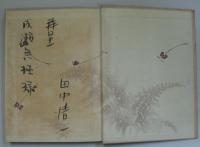 拝呈
成瀬無極様
田中清一